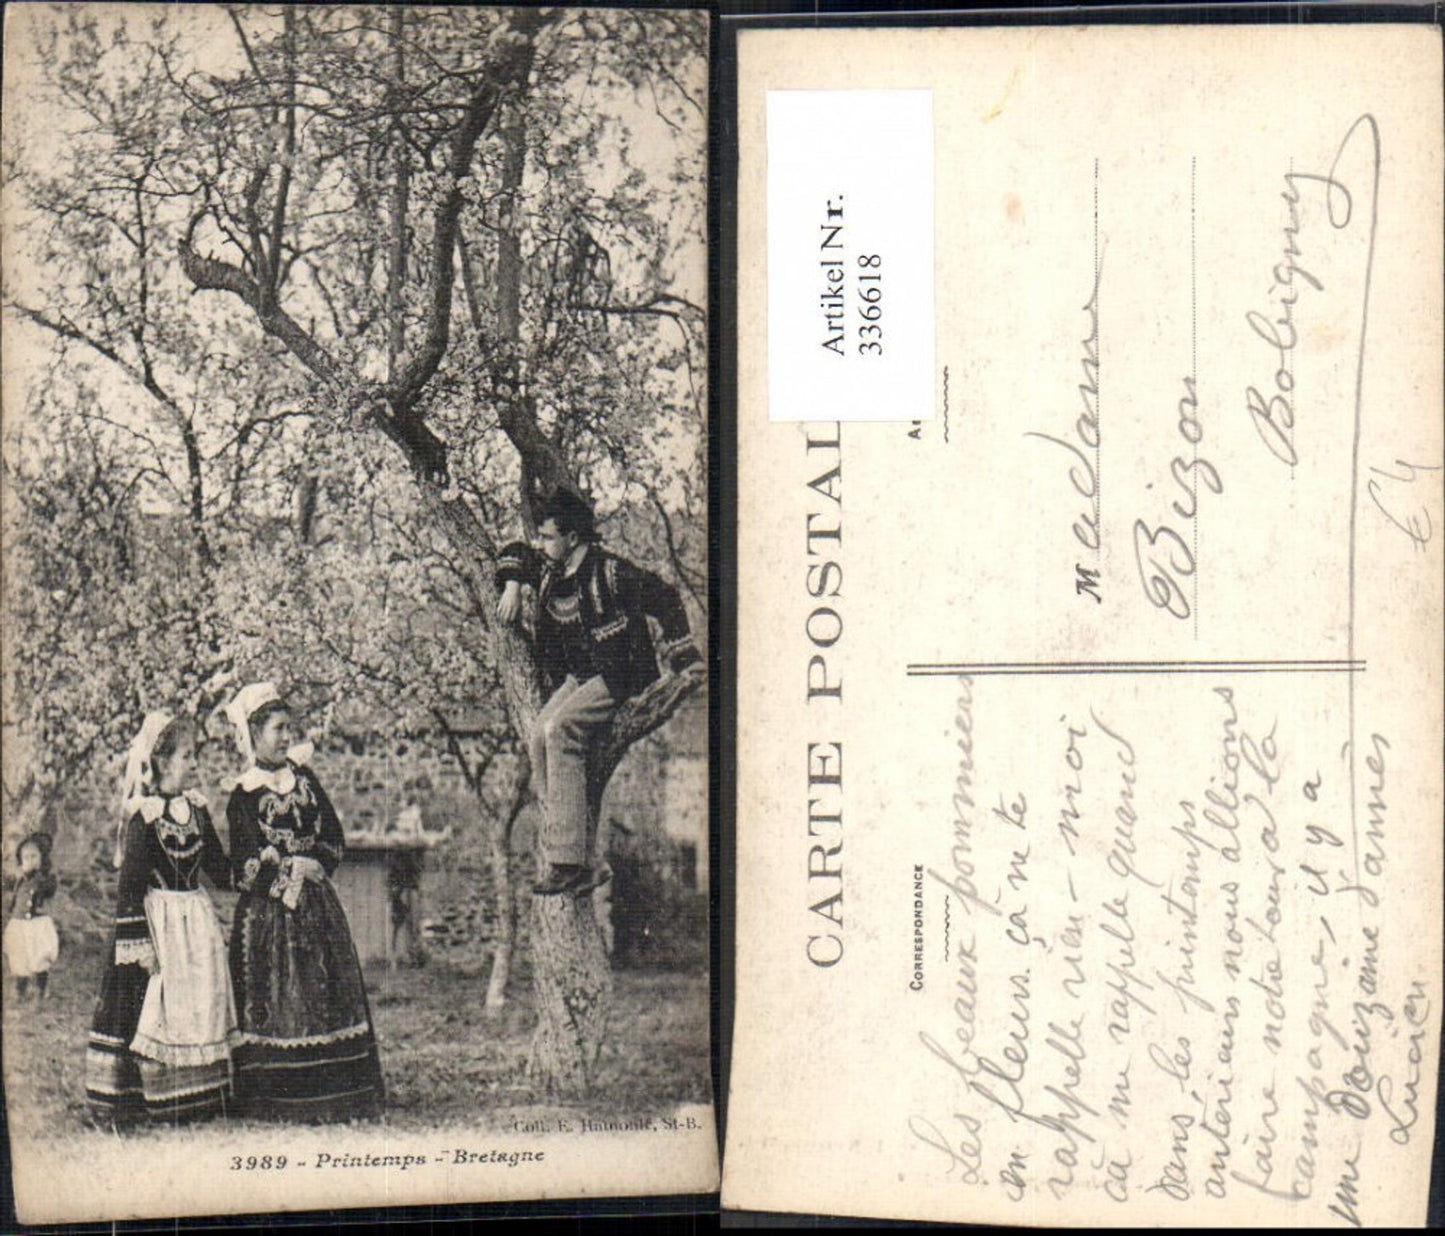 Coll. E. Hamonic, St-B.
3989 - Printemps - Bretagne
CARTE POSTAL
Artikel Nr.
336618
CORRESPONDANCE
Les beaux pommiers
en fleurs. ça ne te
rappelle rien - moi
ça me rappelle quand
dans les printemps
antérieurs nous allions
faire notre tour à la
campagne, il y a
une douzaine d'annes
Lucien.
Madame
Bizon
Bobigny
€4